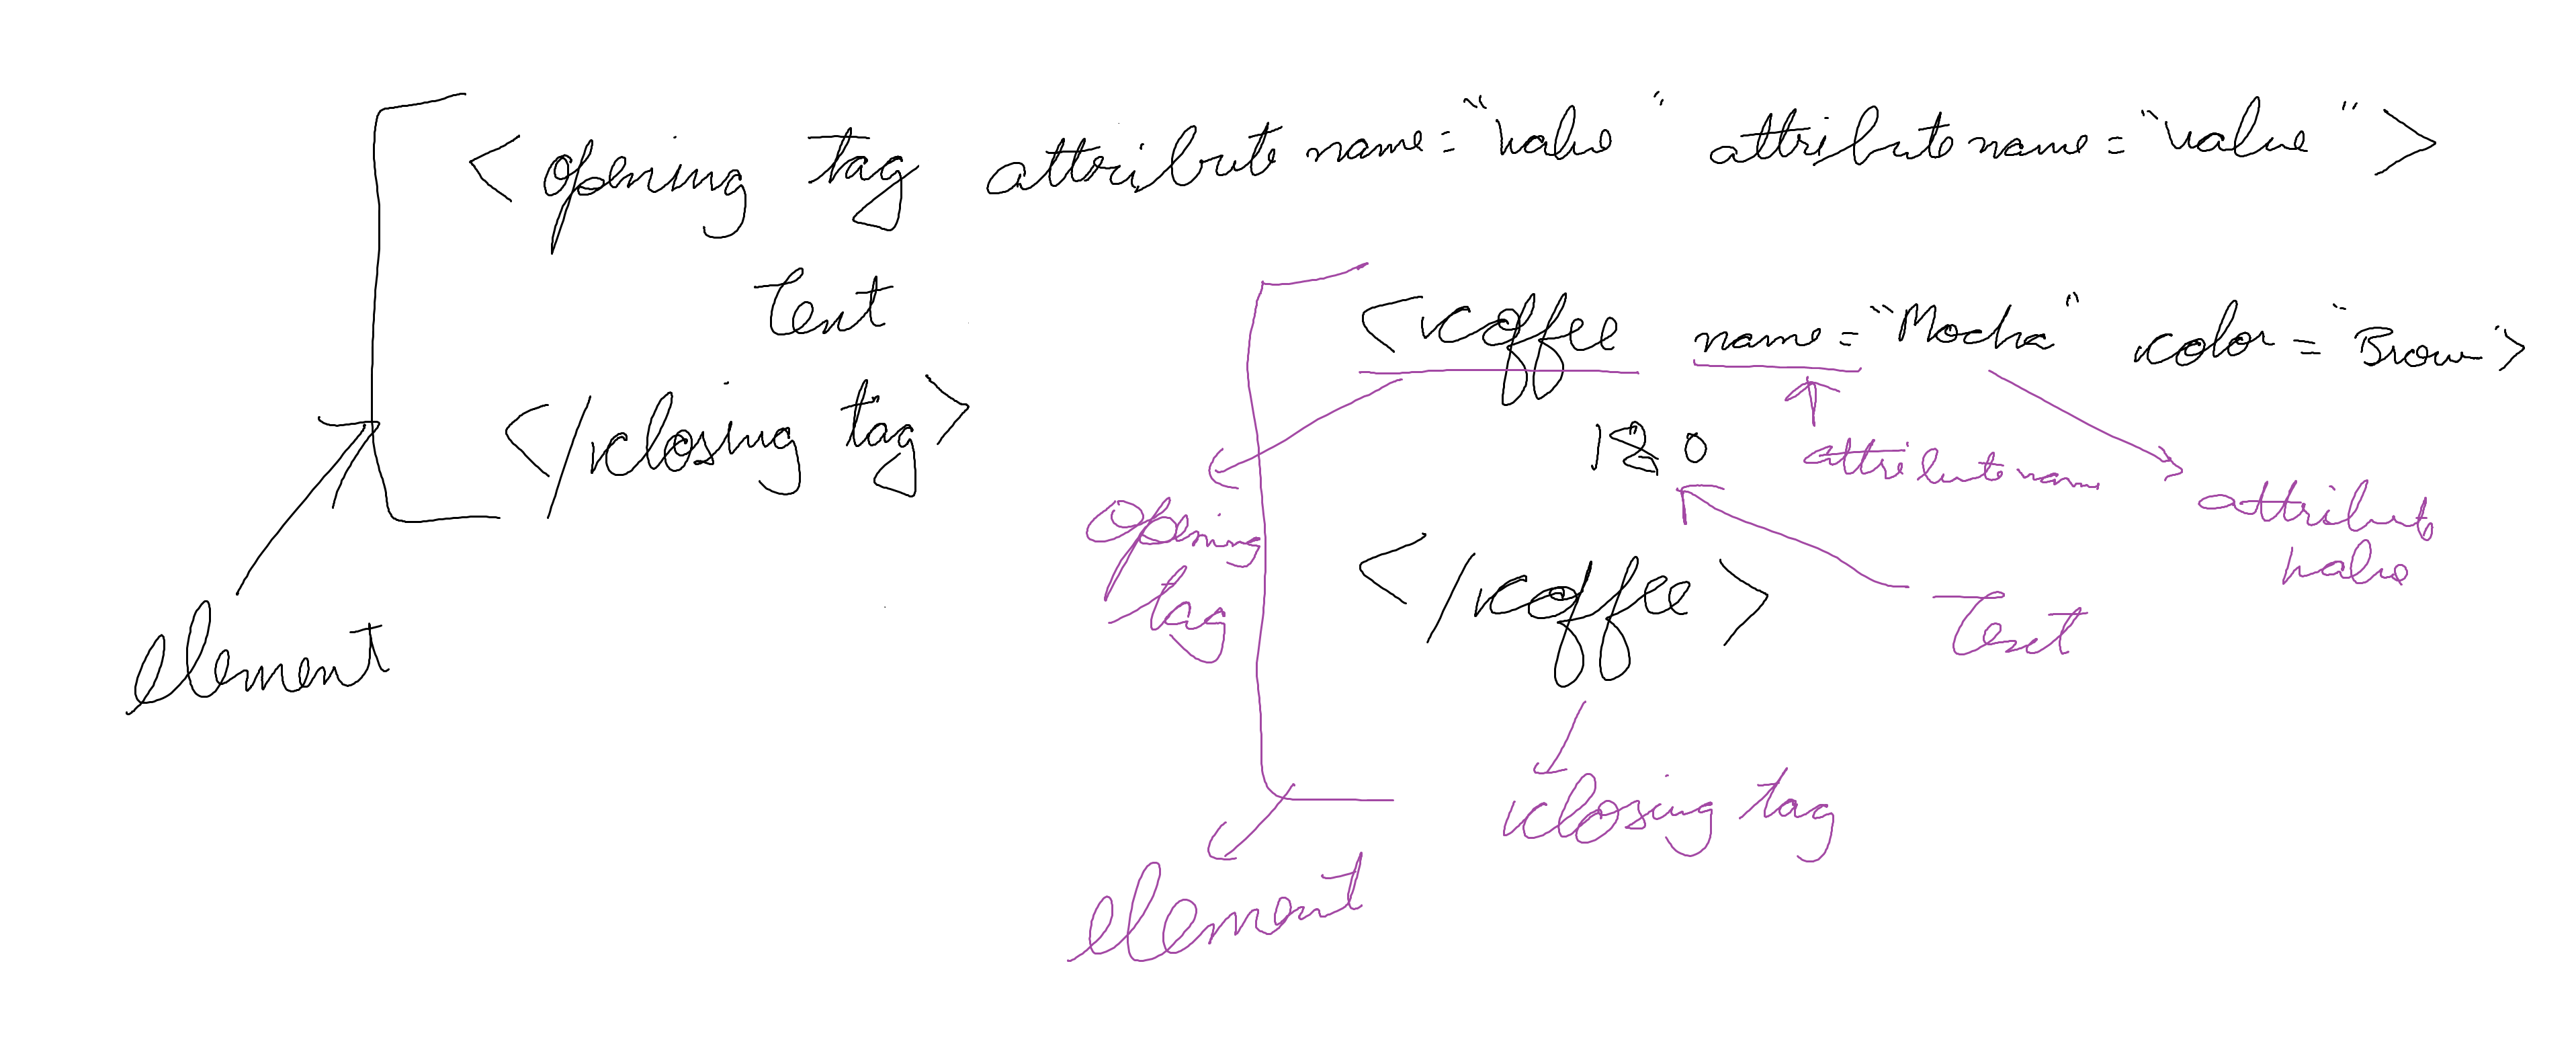 <opening tag attribute name="value" attribute name="value">
Text
</closing tag>
element
<coffee name="Mocha" color="Brown">
180
</coffee>
opening
tag
attribute name
attribute
value
Text
closing tag
element